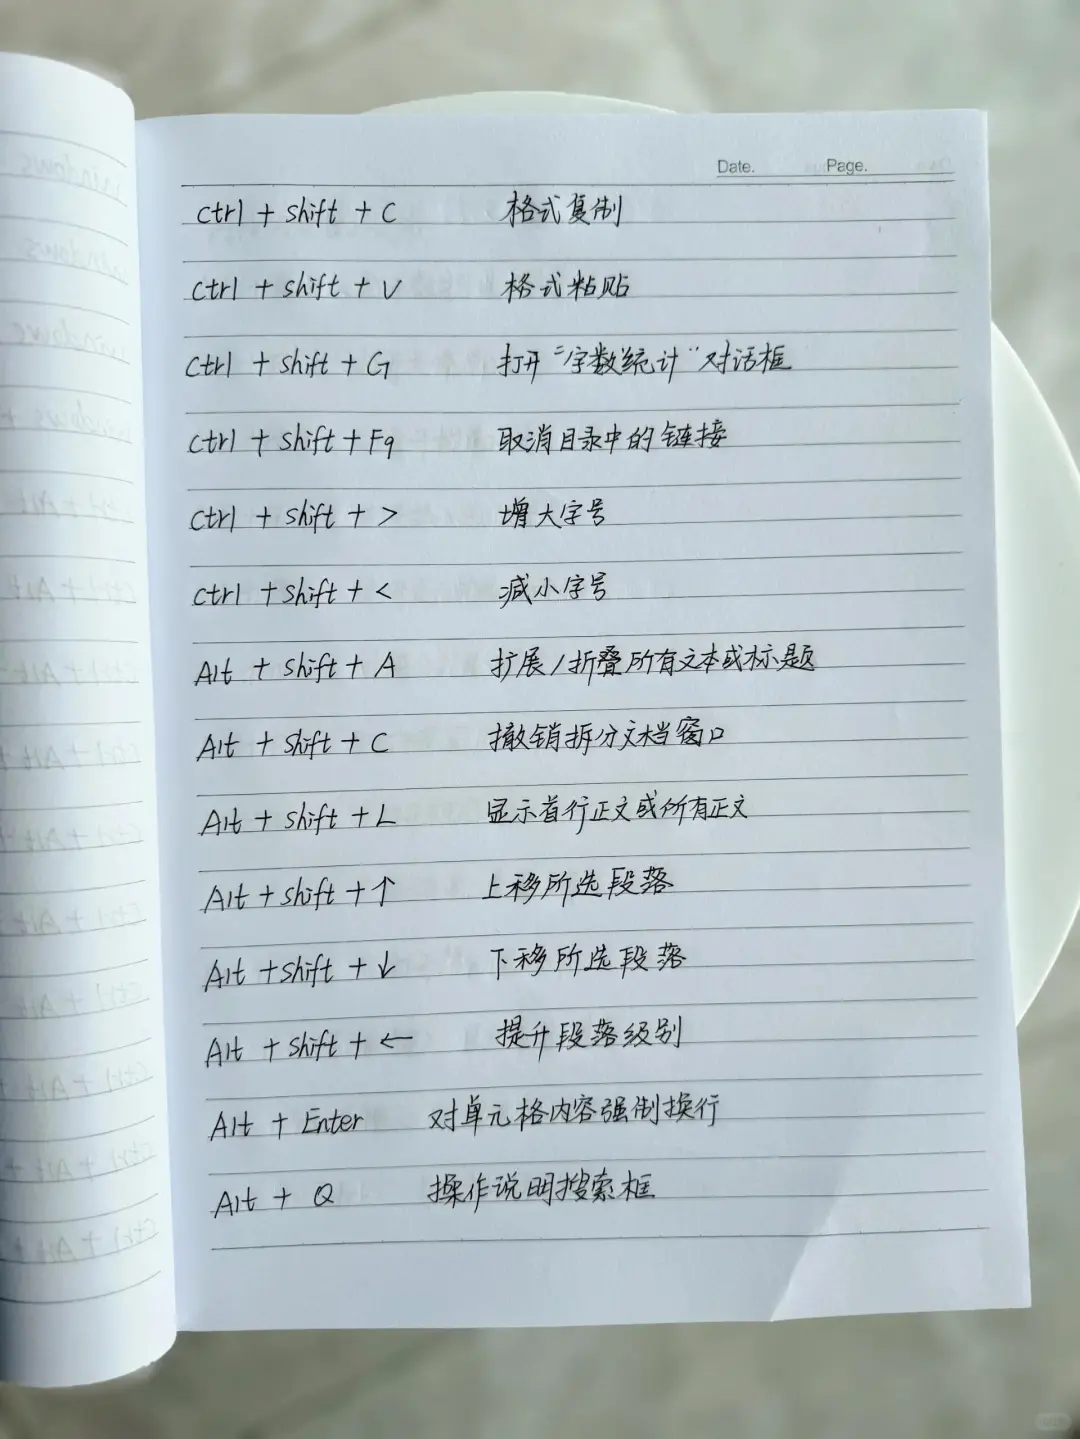 Date. Page.
ctrl + shift + C 格式复制
ctrl + shift + V 格式粘贴
ctrl + shift + G 打开“字数统计”对话框
ctrl + shift + F9 取消目录中的链接
ctrl + shift + > 增大字号
ctrl + shift + < 减小字号
Alt + shift + A 扩展/折叠所有文本或标题
Alt + shift + C 撤销拆分文档窗口
Alt + shift + L 显示首行正文或所有正文
Alt + shift + ↑ 上移所选段落
Alt + shift + ↓ 下移所选段落
Alt + shift + ← 提升段落级别
Alt + Enter 对单元格内容强制换行
Alt + Q 操作说明搜索框